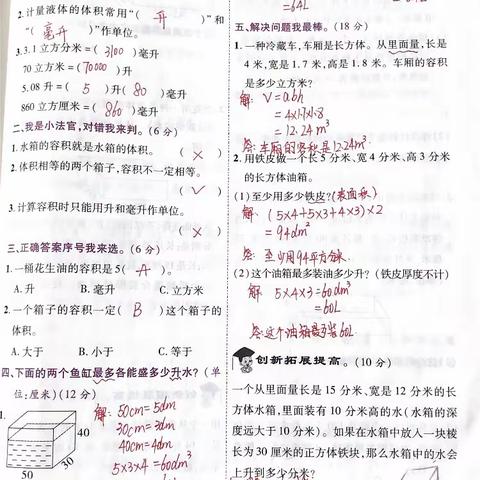 2.计量液体的体积常用“( 升 )”和
“( 毫升 )”作单位。
3.3.1立方分米=( 3100 )毫升
70立方米=( 70000 )升
5.08升=( 5 )升( 80 )毫升
860立方厘米=( 860 )毫升
二、我是小法官,对错我来判。(6分)
1.水箱的容积就是水箱的体积。
( × )
2.体积相等的两个箱子,容积不一定相等。
( √ )
3.计算容积时只能用升和毫升作单位。
( × )
三、正确答案序号我来选。(6分)
1.一桶花生油的容积是5( A )。
A.升 B.毫升 C.立方米
2.一个箱子的容积一定( B )这个箱子的
体积。
A.大于 B.小于 C.等于
四、下面的两个鱼缸最多各能盛多少升水?(单
位:厘米)(12分)
1.
40
30
50
解: 50cm=5dm
30cm=3dm
40cm=4dm
5×3×4=60dm³
=64L
五、解决问题我最棒。(18分)
1.一种冷藏车,车厢是长方体。从里面量,长是
4米,宽是1.7米,高是1.8米。车厢的容积
是多少立方米?
解: V=abh
=4×1.7×1.8
=12.24m³
答:车厢的容积是12.24m³
2.用铁皮做一个长5分米、宽4分米、高3分米
的长方体油箱。
(1)至少用多少铁皮?(表面积)
解: (5×4+5×3+4×3)×2
=94dm²
答: 至少用94平方分米.
(2)这个油箱最多装油多少升?(铁皮厚度不计)
解 5×4×3=60dm³
=60L
答:这个油箱最多装60L
创新拓展提高。(10分)
一个从里面量长是15分米、宽是12分米的长
方体水箱,里面装有10分米高的水(水箱的深
度远大于10分米)。如果在水箱中放入一块棱
长为30厘米的正方体铁块,那么水箱中的水会
上升到多少分米?